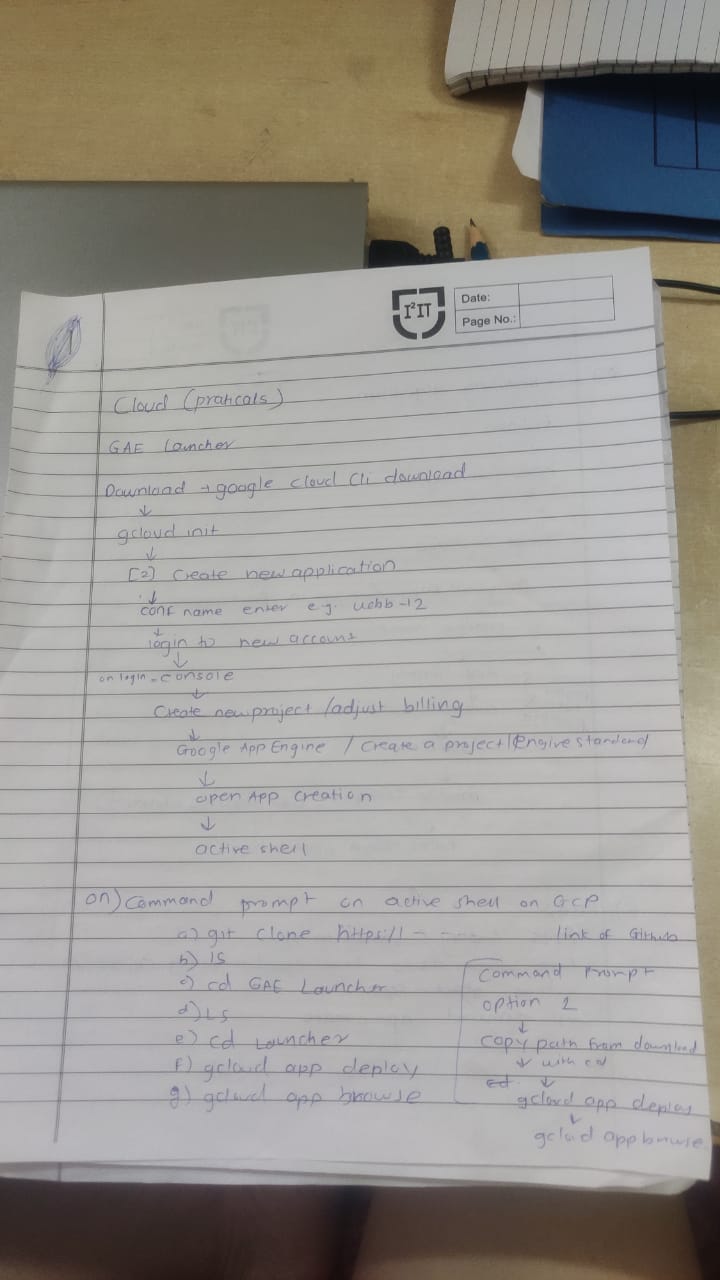 I²IT
Date:
Page No.:
Cloud (praticals)
GAE Launcher
Download → google cloud Cli download
↓
gcloud init
↓
[2] Create new application
↓
conf name enter e.g. uobb-12
↓
login to new account
↓
on login - console
↓
Create new project / adjust billing
↓
Google App Engine / Create a project / Engine standard
↓
open App creation
↓
active shell
on) Command prompt on active shell on GCP
a) git clone https:// - ---- link of Github
b) ls
c) cd GAE Launcher
d) LS
e) cd Launcher
f) gcloud app deploy
g) gcloud app browse
Command Prompt
option 2
↓
copy path from download
↓ with cd
↓
gcloud app deploy
↓
gcloud app browse